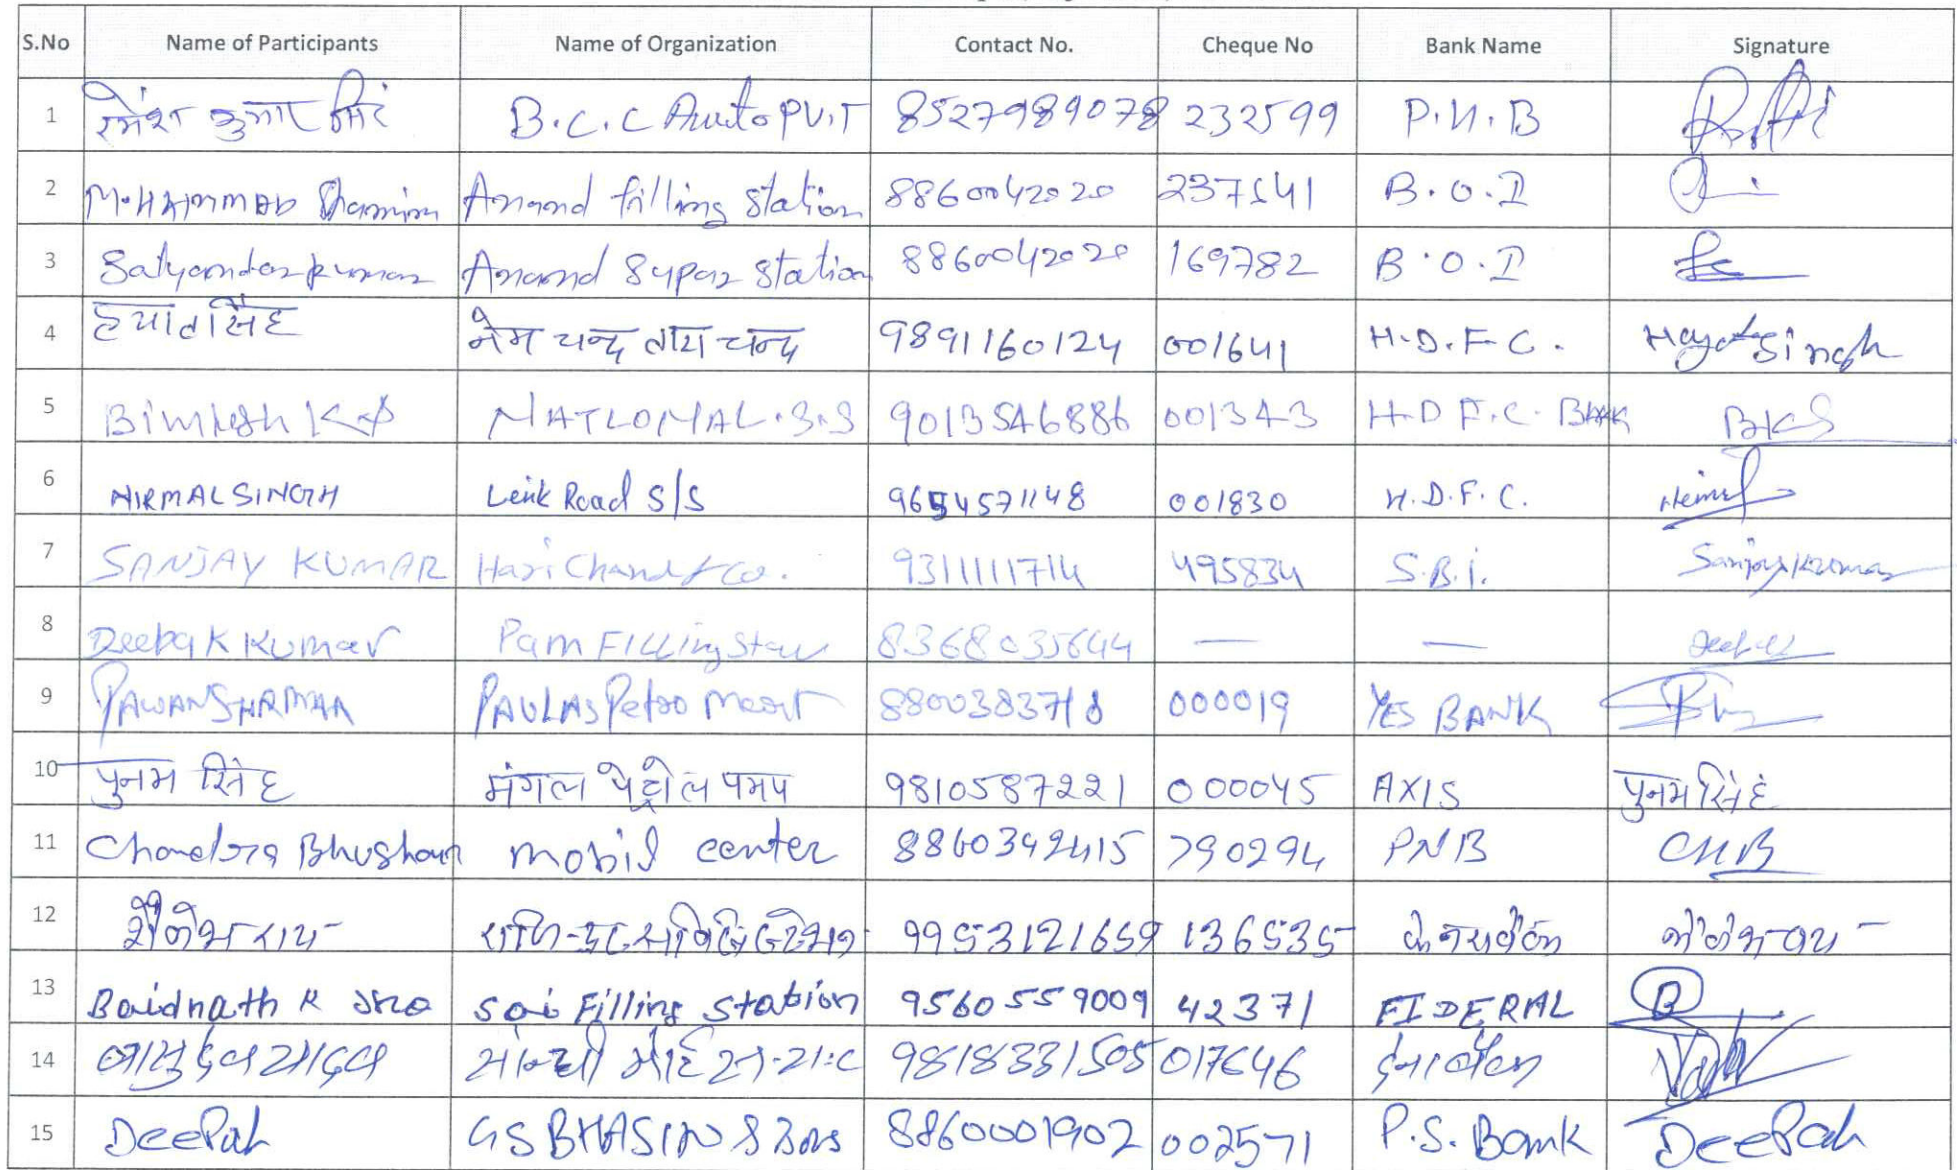 S.No Name of Participants Name of Organization Contact No. Cheque No Bank Name Signature
1 रमेश कुमार सिंह B.C.C Auto PV.T 8527989078 232599 P.N.B
2 MOHAMMAD Shamim Anand filling Station 8860042020 237541 B.O.I
3 Satyander kumar Anand Super Station 8860042020 169782 B.O.I
4 हयात सिंह नेम चन्द तारा चन्द 9891160124 001641 H.D.F.C. Hayat Singh
5 NATIONAL.S.S 9013546886 001343 H.D F.C. BANK BKS
6 NIRMAL SINGH Link Road S/S 9654571148 001830 H.D.F.C.
7 SANJAY KUMAR Hari Chand & Co. 9311111714 495834 S.B.I. Sanjay Kumar
8 Deepak Kumar Pam Filling 8368035644 — —
9 PAWAN SHARMAA PAULAS Petro Maart 8800383718 000019 YES BANK
10 पुनम सिंह मंगल पेट्रोल पमप 9810587221 000045 AXIS पुनम सिंह
11 Chandra Bhushan mobil center 8860349415 790294 PNB CHB
12 शैलेश राय 9953121659 136535
13 Baidnath K Jha Sai Filling Station 9560559009 42371 FIDERAL B
14 बासुदेव यादव 9818331505 017646
15 DeePak GS BHASIN & Sons 8860001902 002571 P.S. Bank DeePak